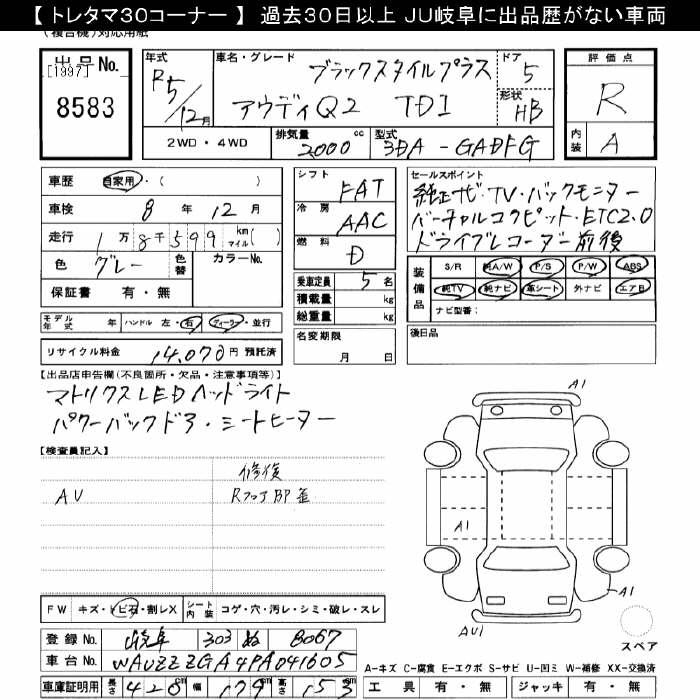 【 トレタマ30コーナー 】 過去30日以上 JU岐阜に出品歴がない車両
(複合機)対応用紙
出品No. [1997] 8583
年式 R5/12月
車名・グレード ブラックスタイルプラス
アウディQ2 TDI
ドア 5
形状 HB
評価点 R
内装 A
2WD・4WD 排気量 2000 cc 型式 3DA-GADFG
車歴 自家用・( )
車検 8年 12月
走行 1万8千599 km マイル( )
色 グレー 色替 カラーNo.
保証書 有・無
シフト FAT
冷房 AAC
燃料 D
乗車定員 5名
積載量 kg
総重量 kg
名変期限 月 日
セールスポイント
純正ナビ・TV・バックモニター
バーチャルコクピット・ETC2.0
ドライブレコーダー前後
装備品 S/R 純A/W P/S P/W ABS
純TV 純ナビ 革シート 外ナビ エアB
ナビ型番:
後日品
モデル年式 年 ハンドル 左・右 ディーラー・並行
リサイクル料金 14,070円 預託済
【出品店申告欄(不良箇所・欠品・注意事項等)】
マトリクスLEDヘッドライト
パワーバックドア・シートヒーター
【検査員記入】
修復
AU RフロアBP歪
A1
A1
A1
AU1
スペア
FW キズ・トビ石・割レX シート内装 コゲ・穴・汚レ・シミ・破レ・スレ
登録No. 岐阜 303 ぬ 8067
車台No. WAUZZZGA4PA041605
車庫証明用 長さ 420cm 幅 179cm 高さ 153cm
A-キズ C-腐食 E-エクボ S-サビ U-凹ミ W-補修 XX-交換済
工具 有・無 ジャッキ 有・無